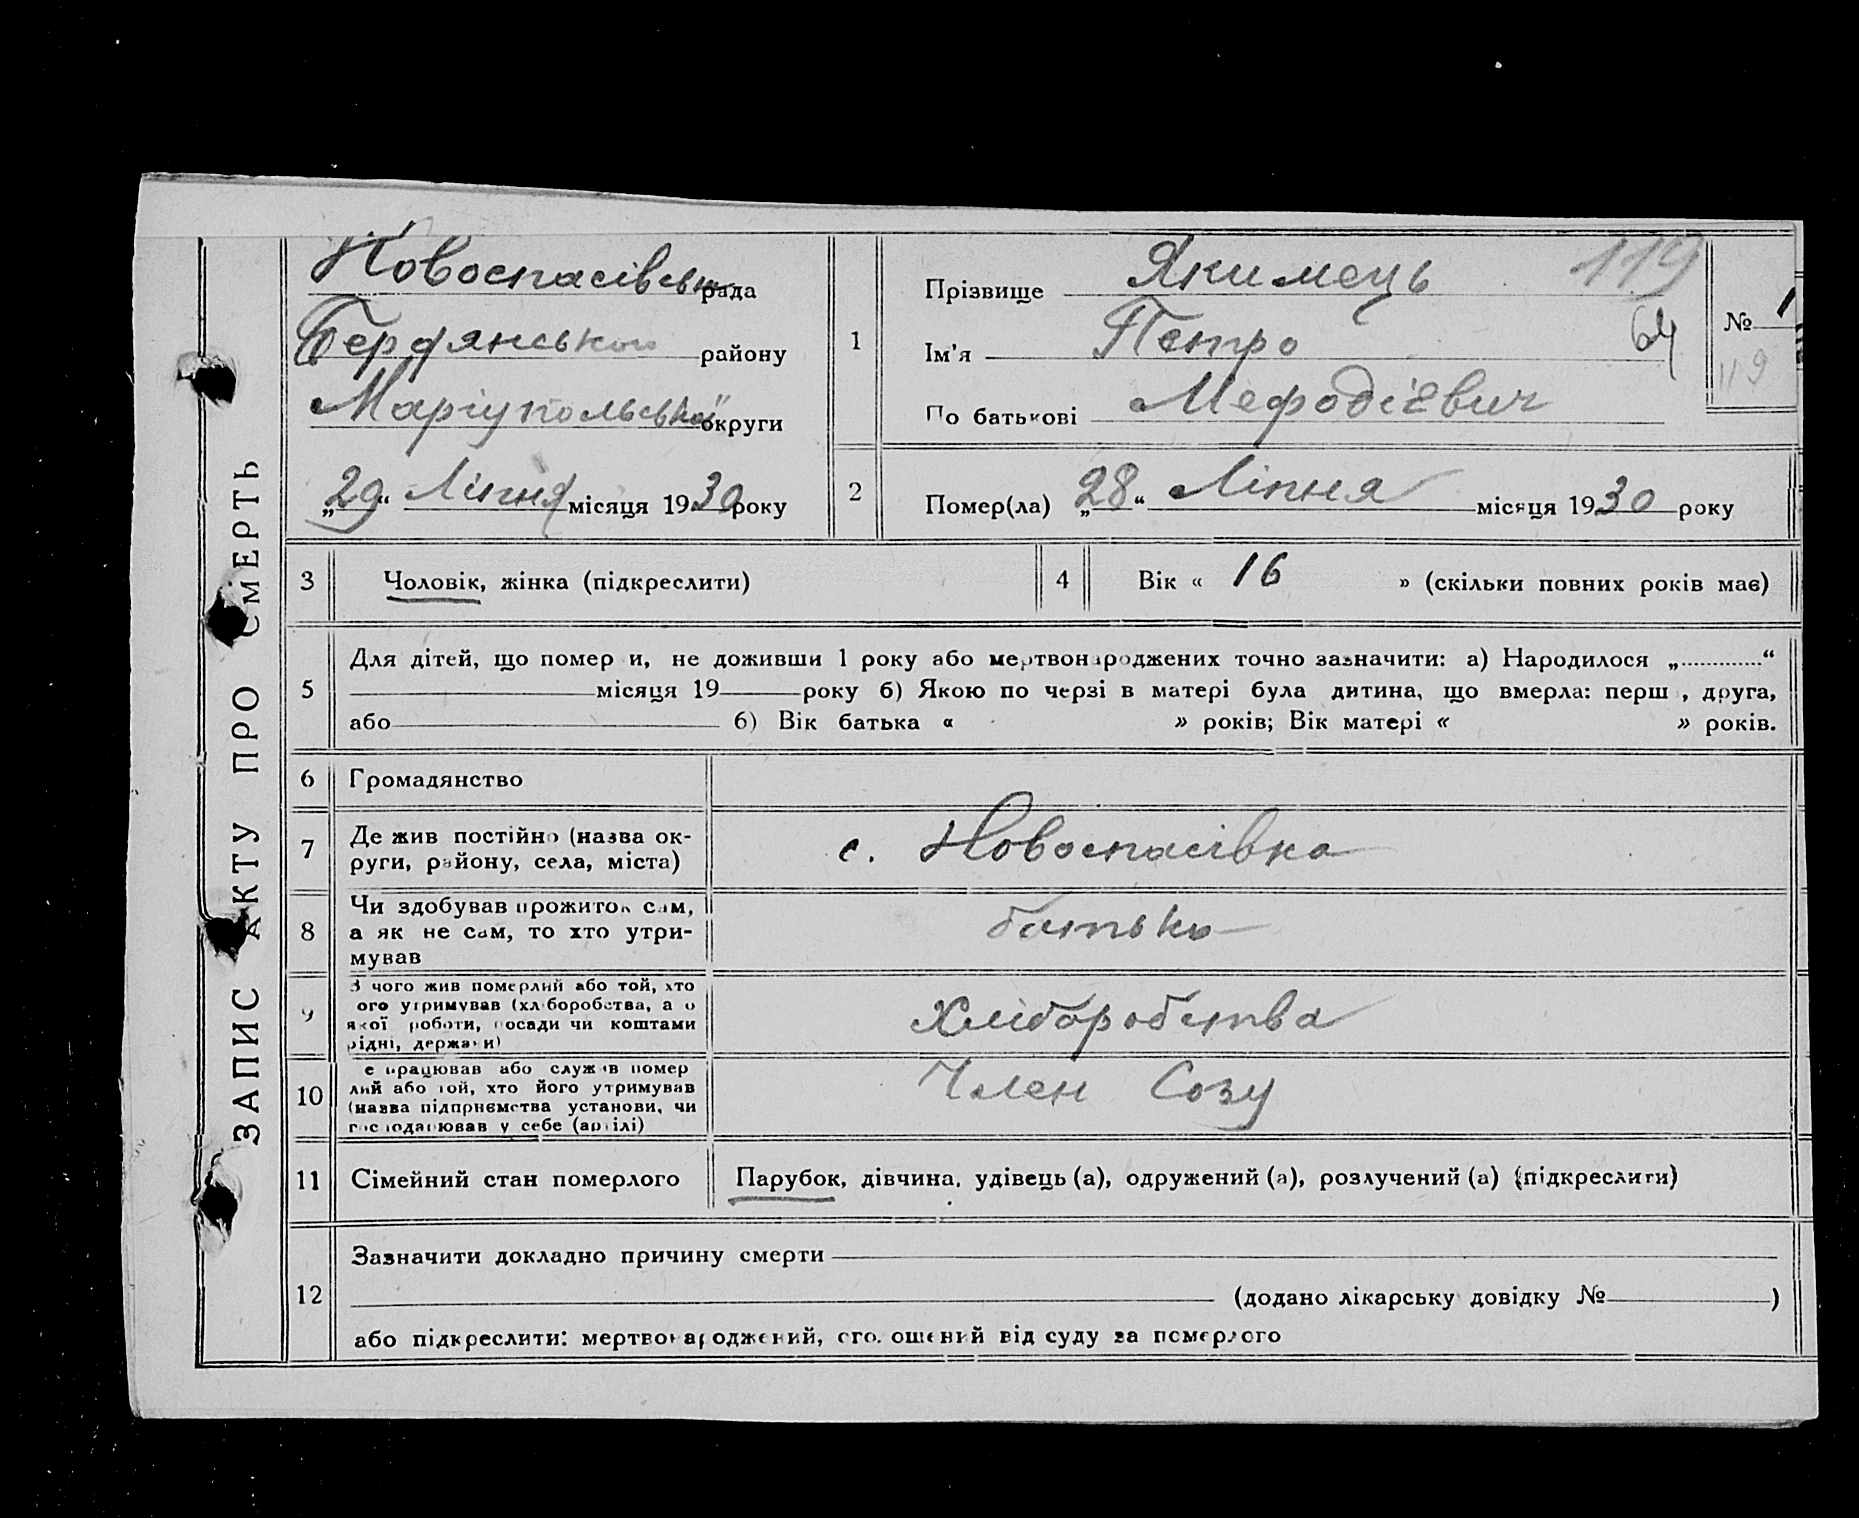 ЗАПИС АКТУ ПРО СМЕРТЬ
Новоспасівська рада
Бердянського району
Маріупольської округи
„29“ Ліпня місяця 1930 року
1
Прізвище Якимець 119
Ім'я Петро 64
По батькові Мефодієвич
№ 1
119
2 Помер(ла) „28“ Ліпня місяця 1930 року
3 Чоловік, жінка (підкреслити)
4 Вік « 16 » (скільки повних років має)
5 Для дітей, що померли, не доживши 1 року або мертвонароджених точно зазначити: а) Народилося „............“
місяця 19 року б) Якою по черзі в матері була дитина, що вмерла: перша, друга,
або б) Вік батька « » років; Вік матері « » років.
6 Громадянство
7 Де жив постійно (назва ок-
руги, району, села, міста)
с. Новоспасівка
8 Чи здобував прожиток сам,
а як не сам, то хто утри-
мував
батько
9 З чого жив померлий або той, хто
його утримував (хліборобства, а о
якої роботи, посади чи коштами
рідні, держави)
Хліборобства
10 Де працював або служив помер
лий або той, хто його утримував
(назва підприємства установи, чи
господарював у себе (артілі)
Член Созу
11 Сімейний стан померлого
Парубок, дівчина, удівець (а), одружений (а), розлучений (а) (підкреслити)
12 Зазначити докладно причину смерти
(додано лікарську довідку № )
або підкреслити: мертвонароджений, оголошений від суду за померлого